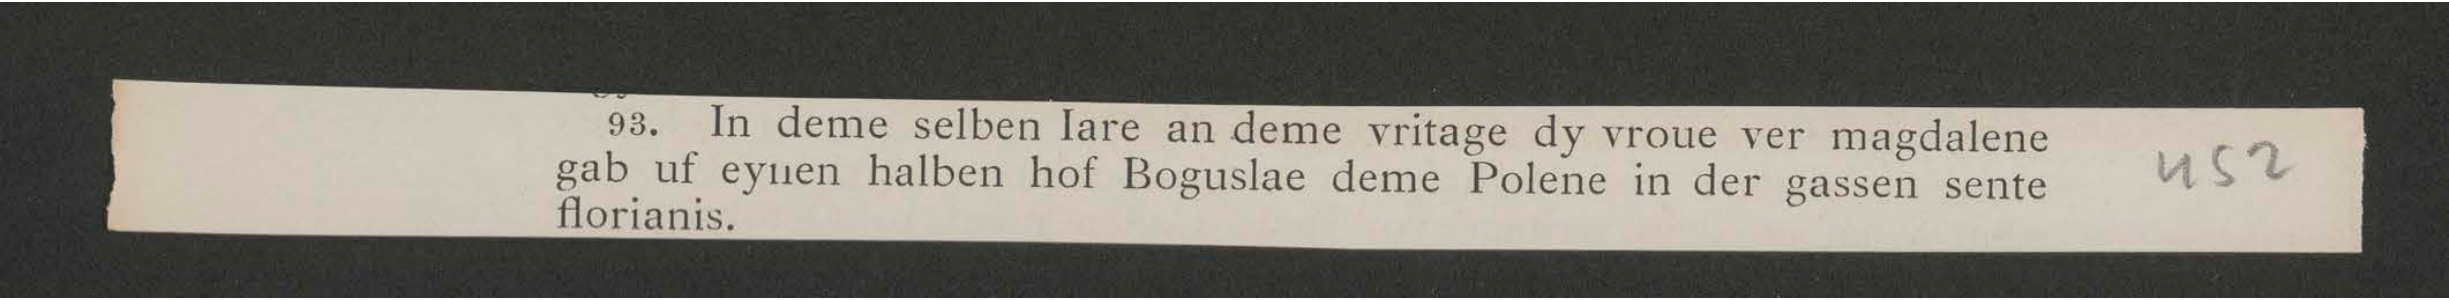 93. In deme selben Iare an deme vritage dy vroue ver magdalene
gab uf eynen halben hof Boguslae deme Polene in der gassen sente
florianis.
452